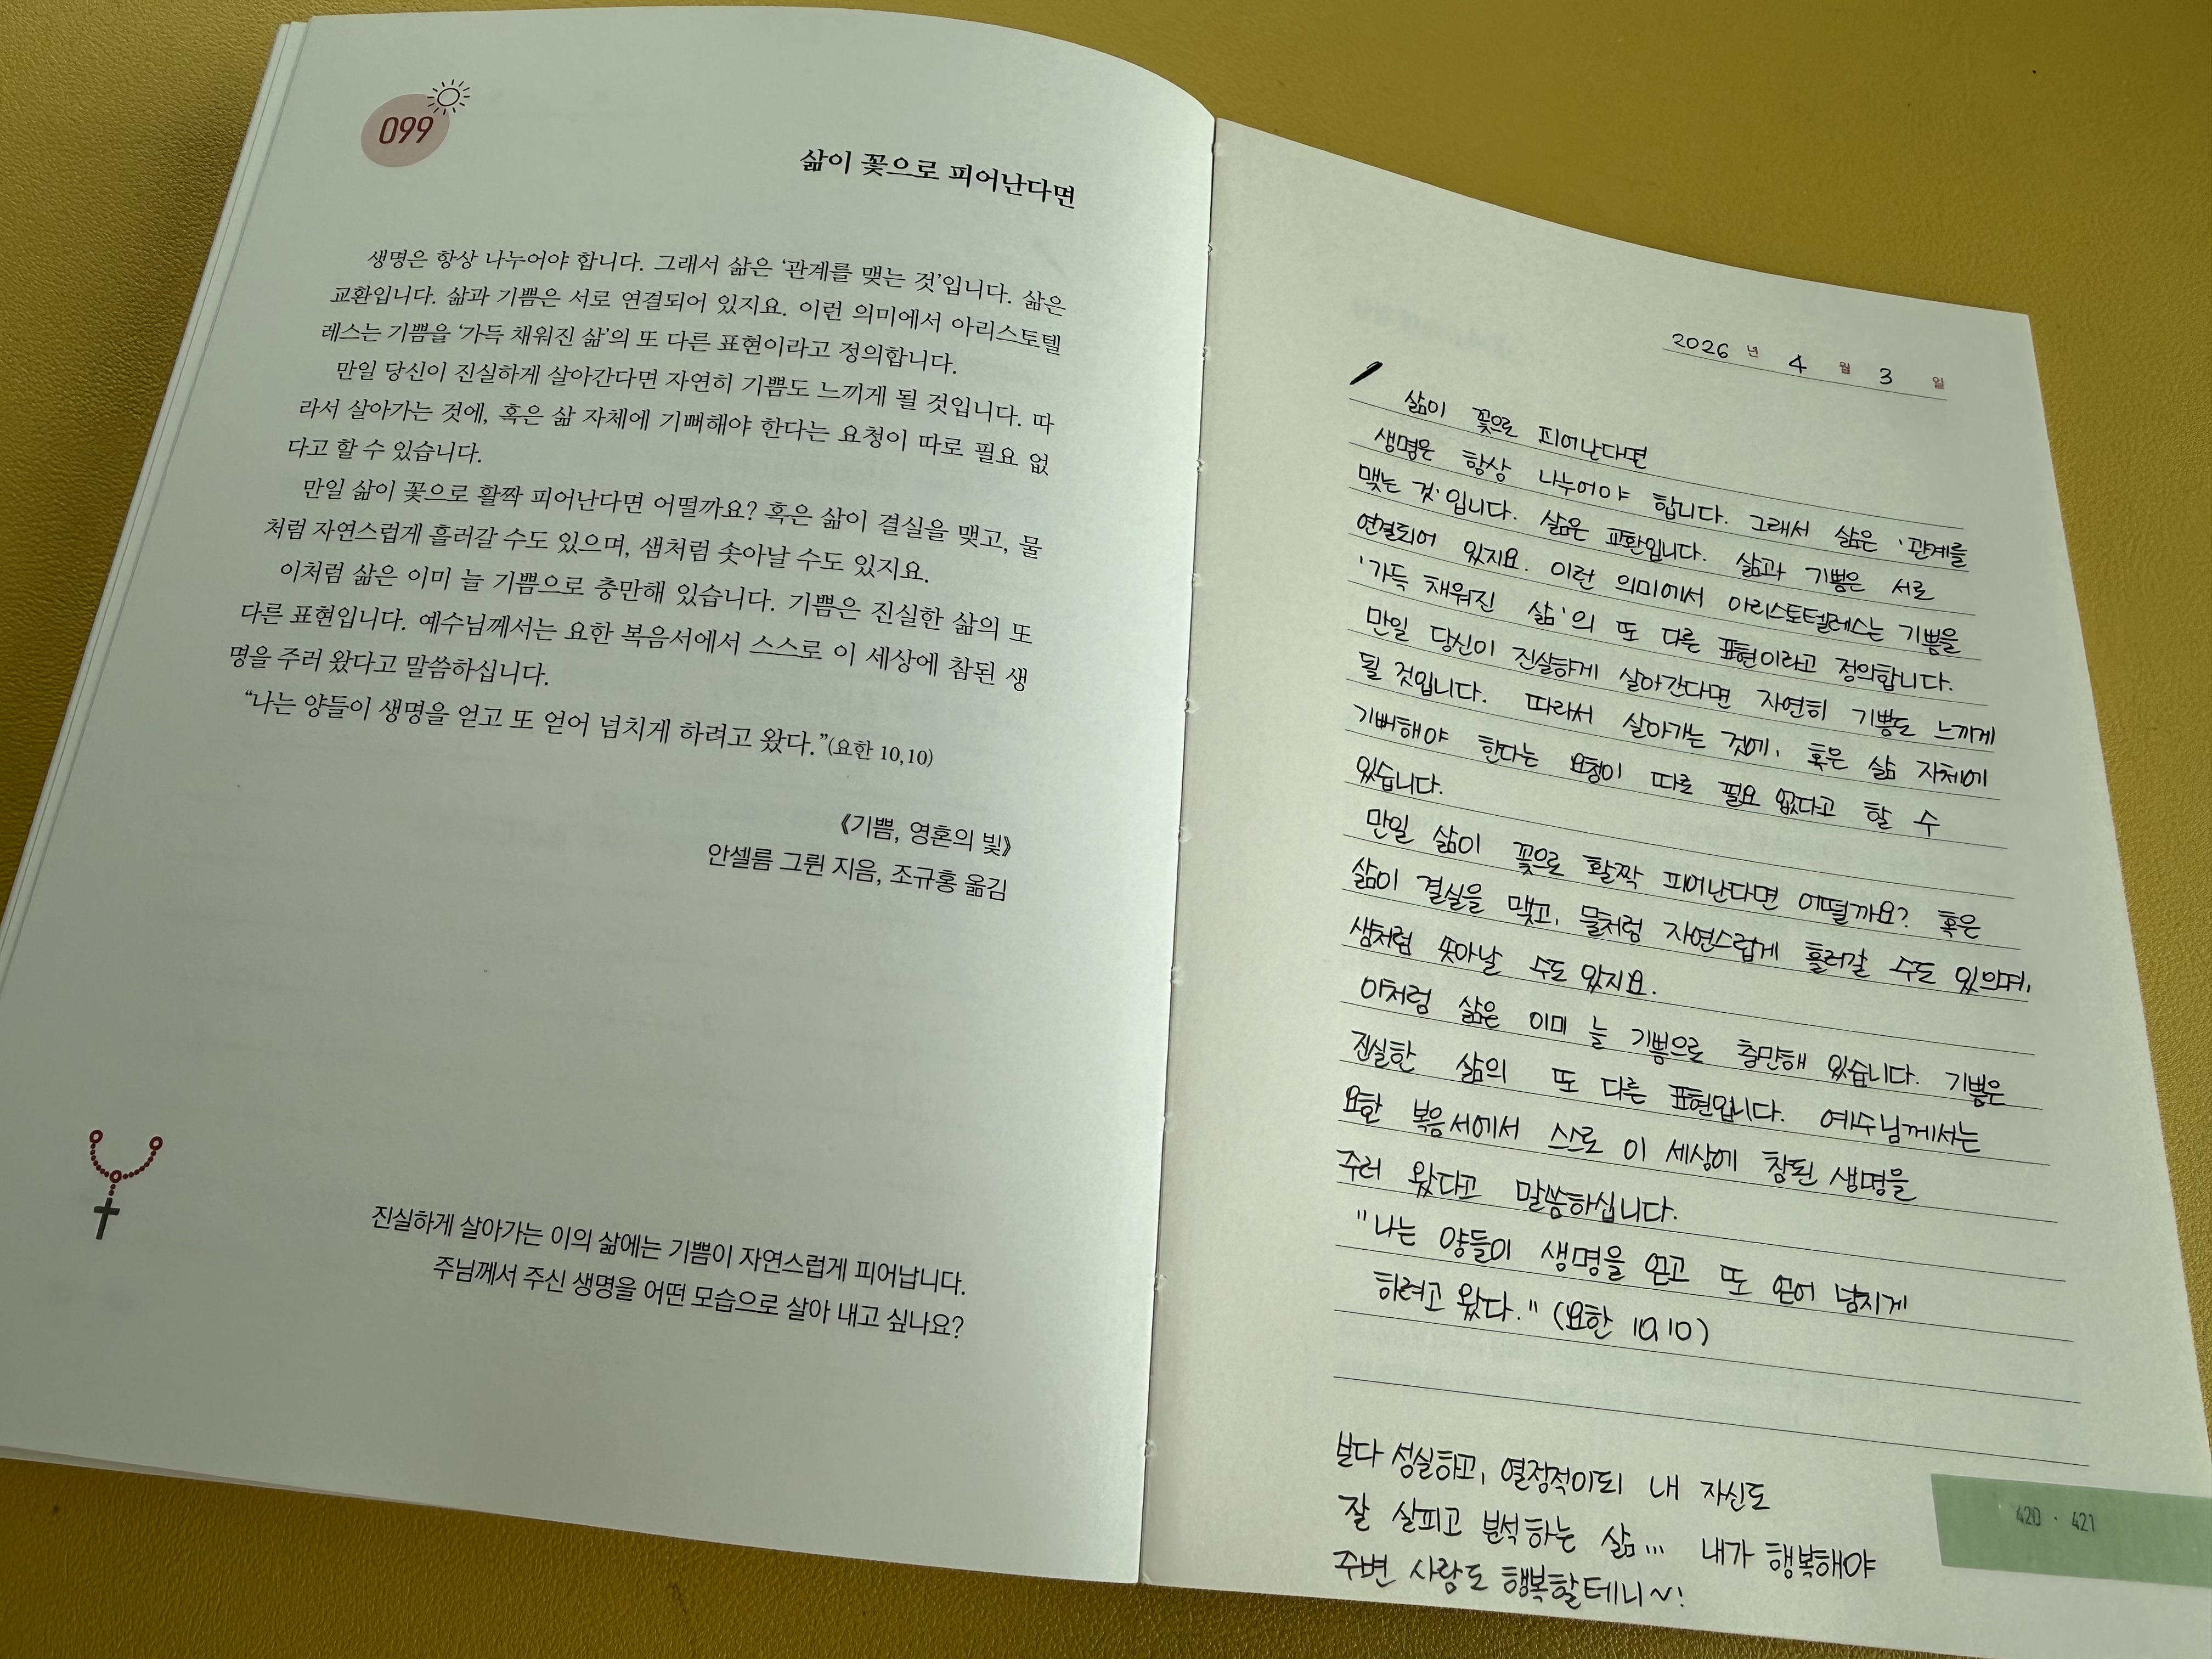 099
삶이 꽃으로 피어난다면
생명은 항상 나누어야 합니다. 그래서 삶은 ‘관계를 맺는 것’입니다. 삶은
교환입니다. 삶과 기쁨은 서로 연결되어 있지요. 이런 의미에서 아리스토텔
레스는 기쁨을 ‘가득 채워진 삶’의 또 다른 표현이라고 정의합니다.
만일 당신이 진실하게 살아간다면 자연히 기쁨도 느끼게 될 것입니다. 따
라서 살아가는 것에, 혹은 삶 자체에 기뻐해야 한다는 요청이 따로 필요 없
다고 할 수 있습니다.
만일 삶이 꽃으로 활짝 피어난다면 어떨까요? 혹은 삶이 결실을 맺고, 물
처럼 자연스럽게 흘러갈 수도 있으며, 샘처럼 솟아날 수도 있지요.
이처럼 삶은 이미 늘 기쁨으로 충만해 있습니다. 기쁨은 진실한 삶의 또
다른 표현입니다. 예수님께서는 요한 복음서에서 스스로 이 세상에 참된 생
명을 주러 왔다고 말씀하십니다.
“나는 양들이 생명을 얻고 또 얻어 넘치게 하려고 왔다.”(요한 10,10)
《기쁨, 영혼의 빛》
안셀름 그륀 지음, 조규홍 옮김
진실하게 살아가는 이의 삶에는 기쁨이 자연스럽게 피어납니다.
주님께서 주신 생명을 어떤 모습으로 살아 내고 싶나요?
2026 년 4 월 3 일
삶이 꽃으로 피어난다면
생명은 항상 나누어야 합니다. 그래서 삶은 ‘관계를
맺는 것’입니다. 삶은 교환입니다. 삶과 기쁨은 서로
연결되어 있지요. 이런 의미에서 아리스토텔레스는 기쁨을
‘가득 채워진 삶’의 또 다른 표현이라고 정의합니다.
만일 당신이 진실하게 살아간다면 자연히 기쁨도 느끼게
될 것입니다. 따라서 살아가는 것에, 혹은 삶 자체에
기뻐해야 한다는 요청이 따로 필요 없다고 할 수
있습니다.
만일 삶이 꽃으로 활짝 피어난다면 어떨까요? 혹은
삶이 결실을 맺고, 물처럼 자연스럽게 흘러갈 수도 있으며,
샘처럼 솟아날 수도 있지요.
이처럼 삶은 이미 늘 기쁨으로 충만해 있습니다. 기쁨은
진실한 삶의 또 다른 표현입니다. 예수님께서는
요한 복음서에서 스스로 이 세상에 참된 생명을
주러 왔다고 말씀하십니다.
"나는 양들이 생명을 얻고 또 얻어 넘치게
하려고 왔다." (요한 10,10)
보다 성실하고, 열정적이되 내 자신도
잘 살피고 분석하는 삶... 내가 행복해야
주변 사람도 행복할테니~!
420 · 421